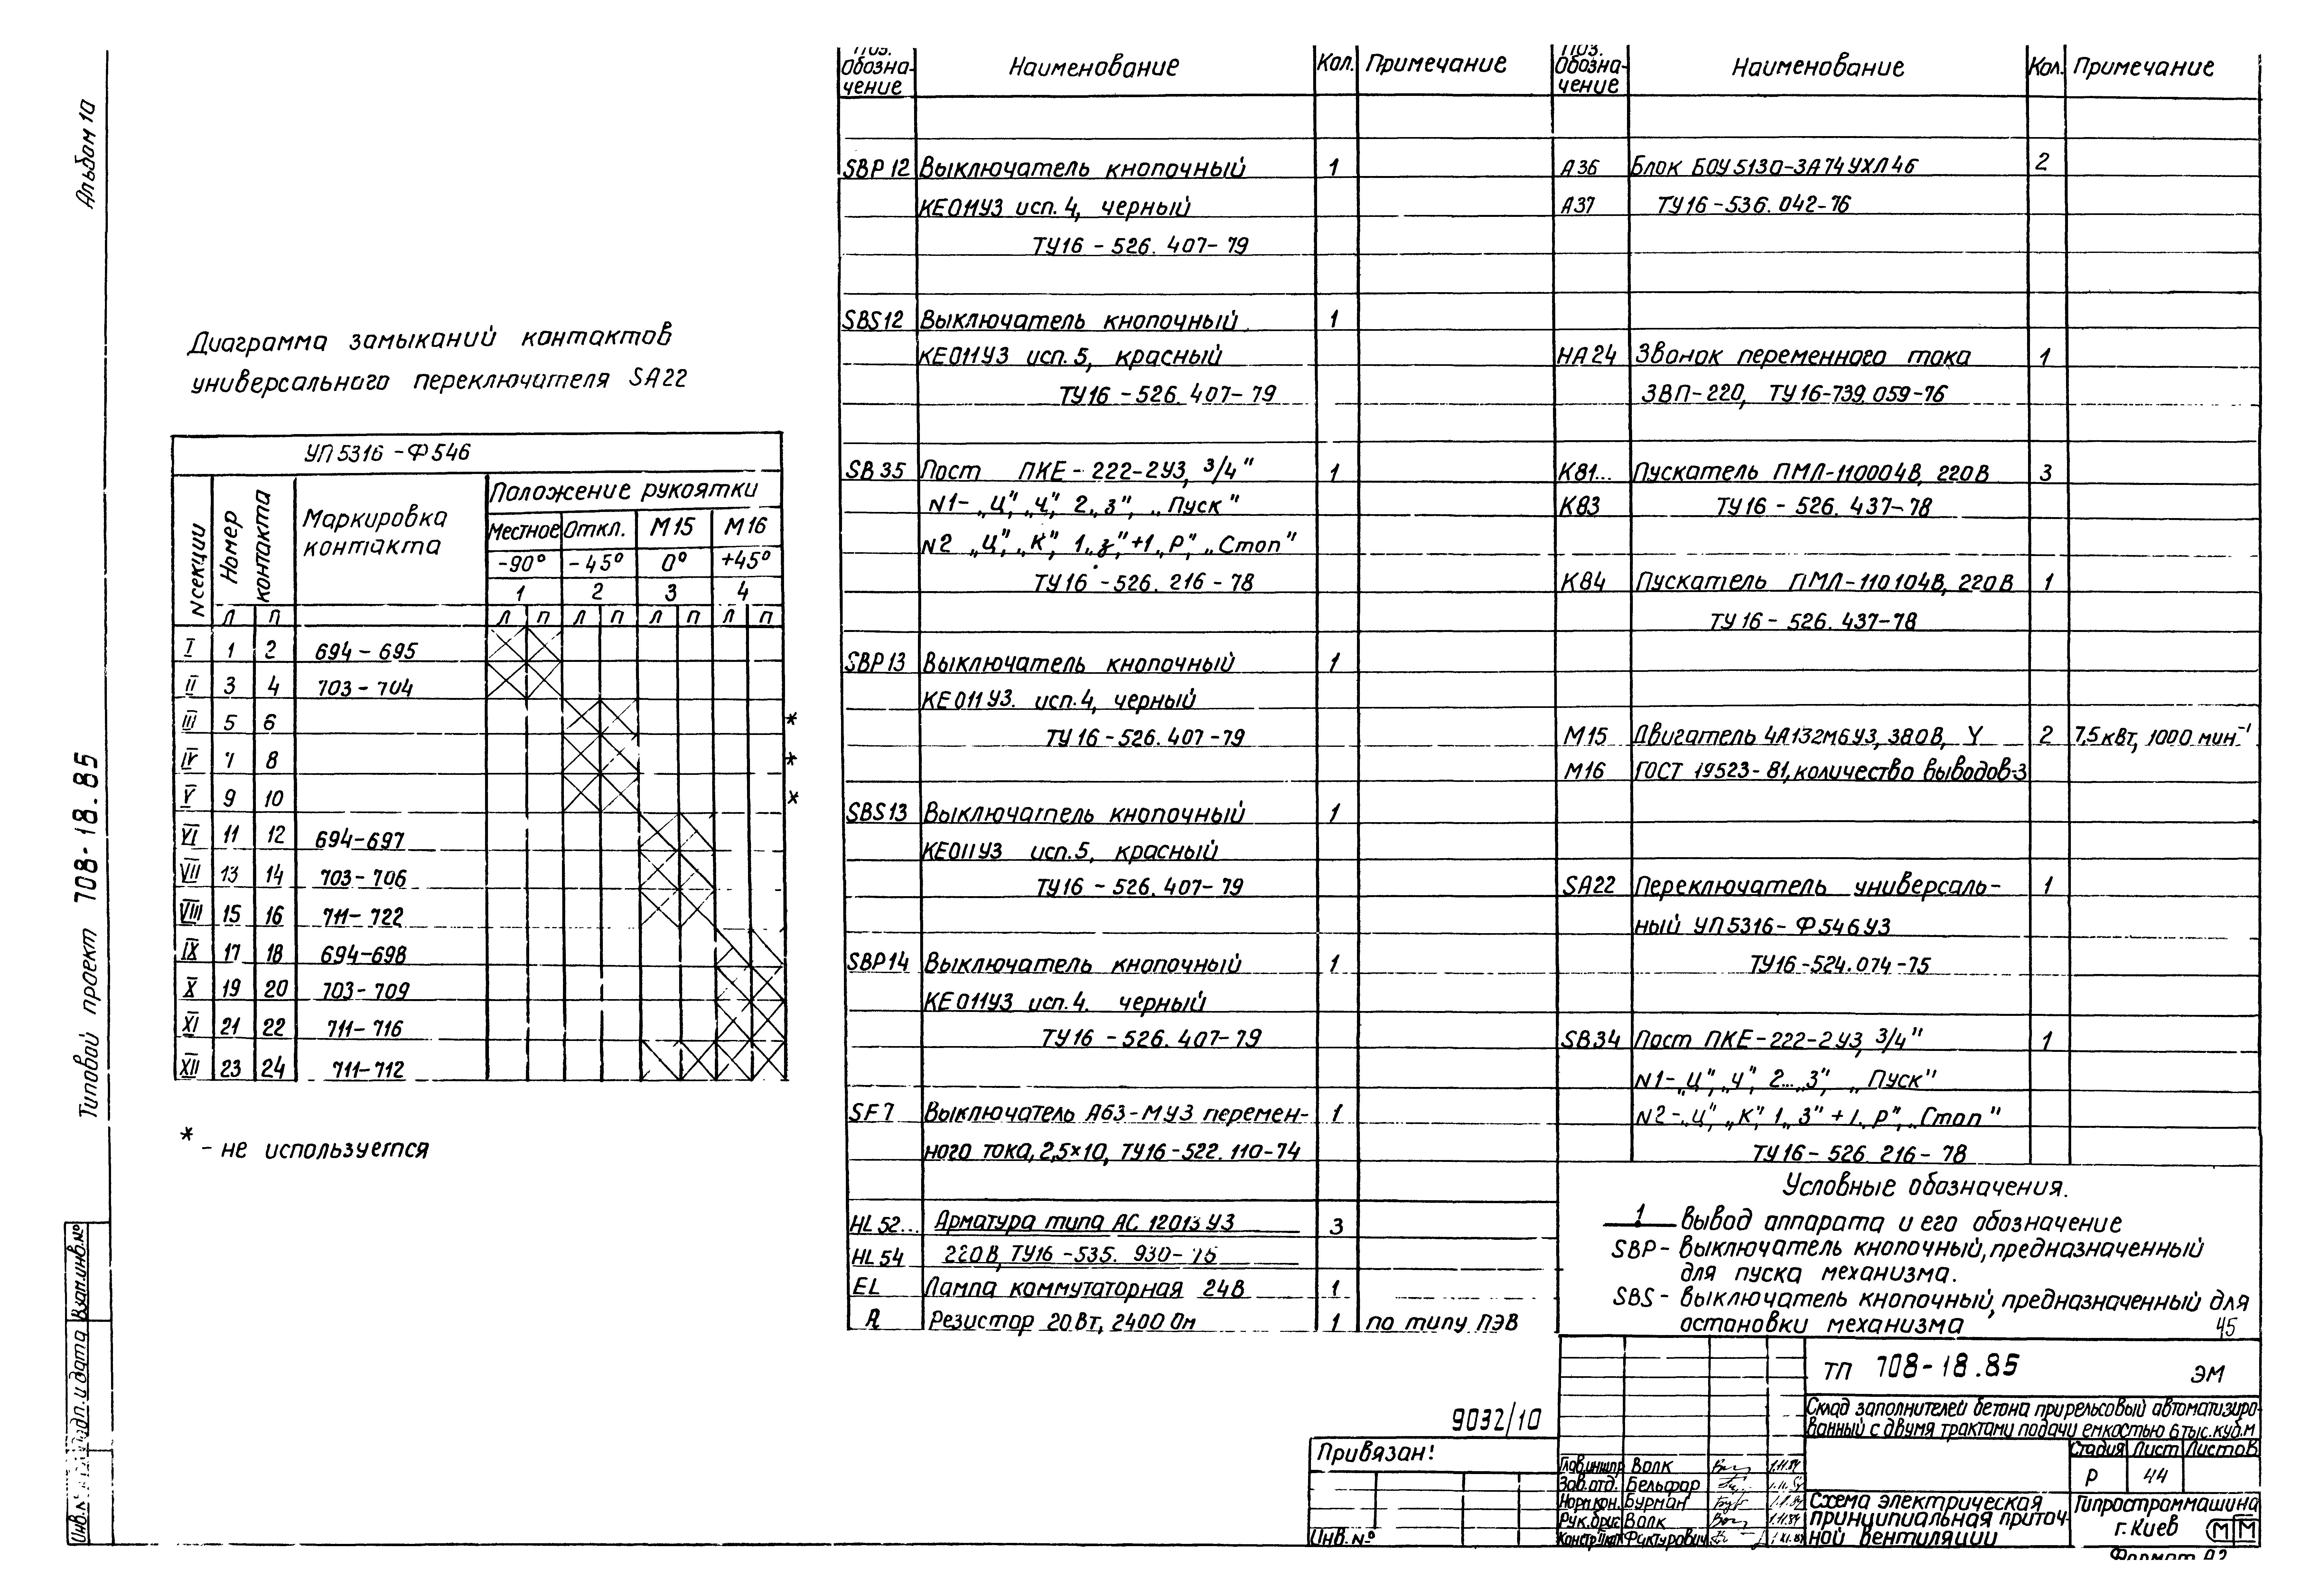 Альбом 1а
Типовой проект 708-18.85
Диаграмма замыканий контактов
универсального переключателя SA22
УП5316-Ф546
N секции
Номер контакта
Маркировка контакта
Положение рукоятки
Местное Откл. М15 М16
-90° -45° 0° +45°
1 2 3 4
Л П Л П Л П Л П Л П
I 1 2 694-695
II 3 4 703-704
III 5 6 *
IV 7 8 *
V 9 10 *
VI 11 12 694-697
VII 13 14 703-706
VIII 15 16 711-722
IX 17 18 694-698
X 19 20 703-709
XI 21 22 711-716
XII 23 24 711-712
* - не используется
Поз. Обозначение Наименование Кол. Примечание
SBP12 Выключатель кнопочный 1
КЕ011У3 исп. 4, черный
ТУ16-526.407-79
SBS12 Выключатель кнопочный 1
КЕ011У3 исп. 5, красный
ТУ16-526.407-79
SB35 Пост ПКЕ-222-2У3, 3/4" 1
N1-„Ц”, „Ч”, 2„з”, „Пуск”
N2 „Ц”, „К”, 1„з”+1„Р”, „Стоп”
ТУ16-526.216-78
SBP13 Выключатель кнопочный 1
КЕ011У3. исп. 4, черный
ТУ16-526.407-79
SBS13 Выключатель кнопочный 1
КЕ011У3 исп. 5, красный
ТУ16-526.407-79
SBP14 Выключатель кнопочный 1
КЕ011У3 исп. 4. черный
ТУ16-526.407-79
SF7 Выключатель А63-МУ3 перемен- 1
ного тока, 2,5×10, ТУ16-522.110-74
HL52... Арматура типа АС 12013У3 3
HL54 220В, ТУ16-535.930-76
EL Лампа коммутаторная 24В 1
R Резистор 20Вт, 2400 Ом 1 по типу ПЭВ
Поз. Обозначение Наименование Кол. Примечание
А36 Блок БОУ5130-3А74УХЛ4б 2
А37 ТУ16-536.042-76
НА24 Звонок переменного тока 1
ЗВП-220, ТУ16-739.059-76
К81... Пускатель ПМЛ-110004В, 220В 3
К83 ТУ16-526.437-78
К84 Пускатель ПМЛ-110104В, 220В 1
ТУ16-526.437-78
М15 Двигатель 4А132М6У3, 380В, Y 2 7,5 кВт, 1000 мин⁻¹
М16 ГОСТ 19523-81, количество выводов-3
SA22 Переключатель универсаль- 1
ный УП5316-Ф546У3
ТУ16-524.074-75
SB34 Пост ПКЕ-222-2У3, 3/4" 1
N1-„Ц”, „Ч”, 2...„З”, „Пуск”
N2-„Ц”, „К”, 1„З”+1„Р”, „Стоп”
ТУ16-526.216-78
Условные обозначения.
1 вывод аппарата и его обозначение
SBP - выключатель кнопочный, предназначенный
для пуска механизма.
SBS - выключатель кнопочный, предназначенный для
остановки механизма
45
ТП 708-18.85 ЭМ
Склад заполнителей бетона прирельсовый автоматизиро-
ванный с двумя трактами подачи емкостью 6 тыс. куб. м
Стадия Лист Листов
Р 44
Схема электрическая
принципиальная приточ-
ной вентиляции
Гипростроммашина
г. Киев
Формат А2
Глав. инж. пр. Волк 1.11.84
Зав. отд. Бельфор
Норм. кон. Бурман
Рук. бриг. Волк 1.11.84
Констр. Фиктурович
9032/10
Привязан!
Инв. №
Взам. инв. №
Подп. и дата